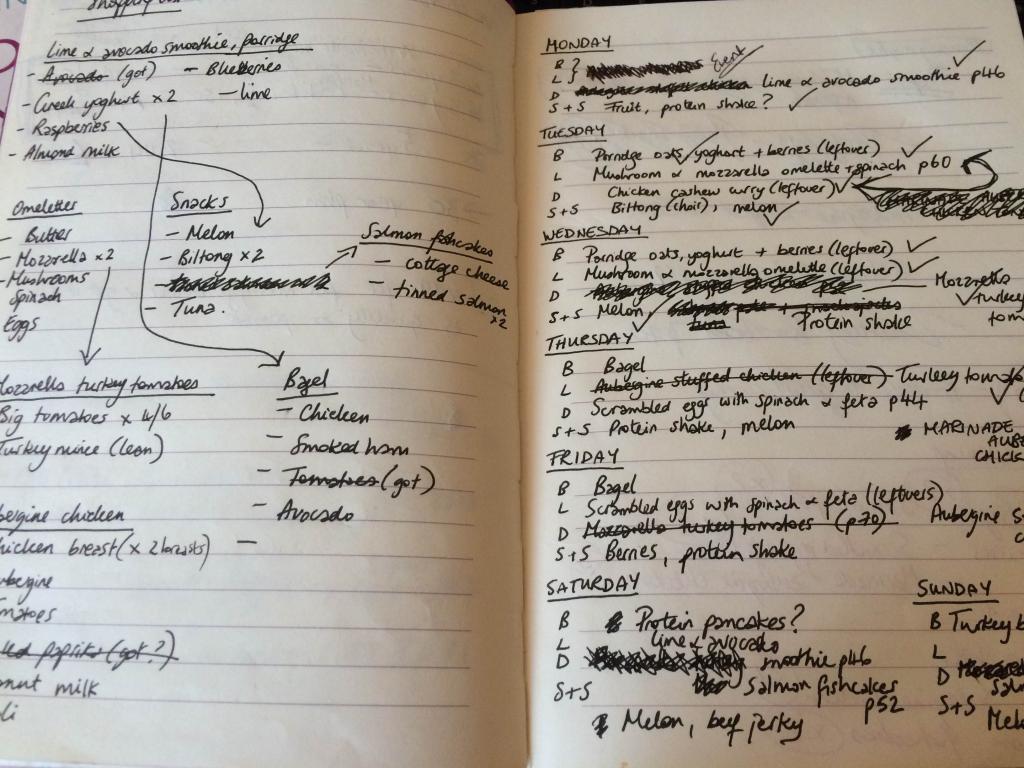 Shopping list
Lime & avocado smoothie, porridge
- Avocado (got) - Blueberries
- Greek yoghurt x2 - lime
- Raspberries
- Almond milk
Omelettes
- Butter
- Mozzarella x2
- Mushrooms
Spinach
Eggs
Snacks
- Melon
- Biltong x2
- Tuna.
Salmon fishcakes
- cottage cheese
- tinned salmon x2
Mozzarella turkey tomatoes
Big tomatoes x 4/6
Turkey mince (lean)
Bagel
- Chicken
- Smoked ham
- Tomatoes (got)
- Avocado
-
bergine chicken
hicken breast (x 2 breasts)
ubergine
matoes
ked paprika (got?)
onut milk
li
MONDAY
B }
L } Event
D Lime & avocado smoothie p46
S+S Fruit, protein shake?
TUESDAY
B Porridge oats, yoghurt + berries (leftover)
L Mushroom & mozzarella omelette + spinach p60
D Chicken cashew curry (leftover)
S+S Biltong (choir), melon
WEDNESDAY
B Porridge oats, yoghurt + berries (leftover)
L Mushroom & mozzarella omelette (leftover)
D Mozzarella
turkey
tom
S+S Melon, Protein shake
THURSDAY
B Bagel
L Aubergine stuffed chicken (leftover) Turkey tomato
D Scrambled eggs with spinach & feta p44
S+S Protein shake, melon
MARINADE
AUBE
CHICK
FRIDAY
B Bagel
L Scrambled eggs with spinach & feta (leftovers)
D Mozzarella turkey tomatoes (p70) Aubergine s
S+S Berries, protein shake
SATURDAY
B Protein pancakes?
L lime & avocado
D smoothie p46
S+S Salmon fishcakes
p52
Melon, beef jerky
SUNDAY
B Turkey b
L
D Salm
S+S Melo